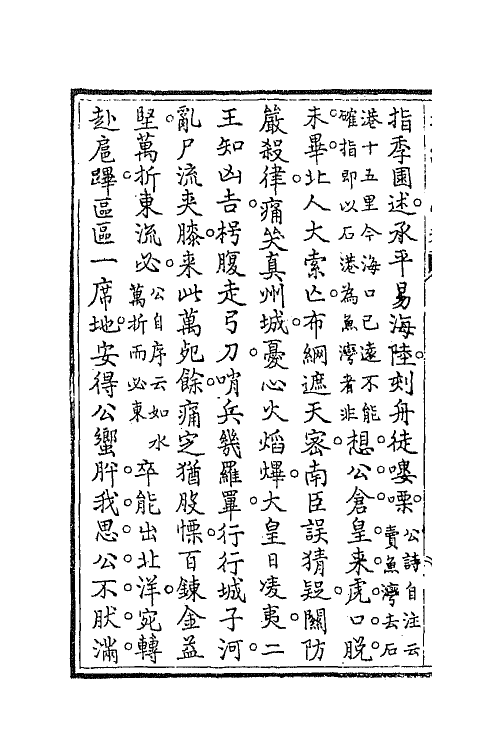 指季園述承平易海陸刻舟徒嘍㗚公詩自注云賣魚灣去石
港十五里今海口已遠不能確指即以石港為魚灣者非想公倉皇来虎口脫
未畢北人大索亡布網遮天密南臣誤猜疑關防
嚴殺律痛哭真州城憂心火焰爗大皇日凌夷二
王知凶吉枵腹走弓刀哨兵幾羅罼行行城子河
亂尸流夾膝来此萬死餘痛定猶股慄百鍊金益
堅萬折東流必公自序云如水萬折而必東卒能出北洋宛轉
赴扈蹕區區一席地安得公蠁肸我思公不肰滿